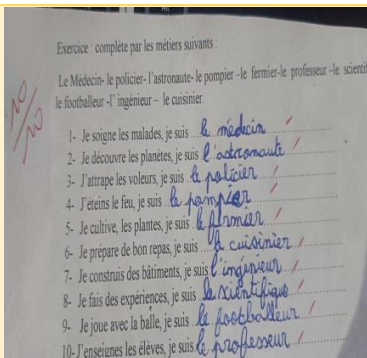 Exercice : complète par les métiers suivants :
Le Médecin- le policier- l'astronaute- le pompier –le fermier-le professeur –le scientif
le footballeur -l' ingénieur – le cuisinier.
10/10
1- Je soigne les malades, je suis le médicin
2- Je découvre les planètes, je suis l'astronaute
3- J'attrape les voleurs, je suis le policier
4- J'éteins le feu, je suis le pompier
5- Je cultive, les plantes, je suis le fermier
6- Je prépare de bon repas, je suis le cuisinier
7- Je construis des bâtiments, je suis l'ingénieur
8- Je fais des expériences, je suis le scientifique
9- Je joue avec la balle, je suis le footballeur
10- J'enseignes les élèves, je suis le professeur